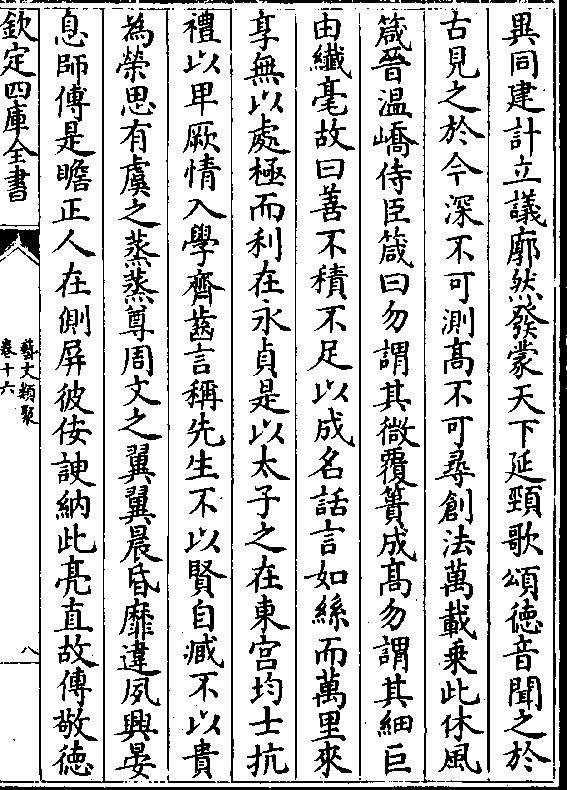 異同建計立議廓然發蒙天下延頸歌頌德音聞之於
古見之於今深不可測高不可尋創法萬載乗此休風
箴晉溫嶠侍臣箴曰勿謂其微覆簣成高勿謂其細巨
由纎毫故曰善不積不足以成名話言如絲而萬里來
享無以處極而利在永貞是以太子之在東宫均士抗
禮以卑厥情入學齊齒言稱先生不以賢自臧不以貴
為榮思有虞之蒸蒸尊周文之翼翼晨昏靡違夙興晏
息師傅是瞻正人在側屏彼佞諛納此亮直故傅敬德
欽定四庫全書
藝文類聚
卷十六
八